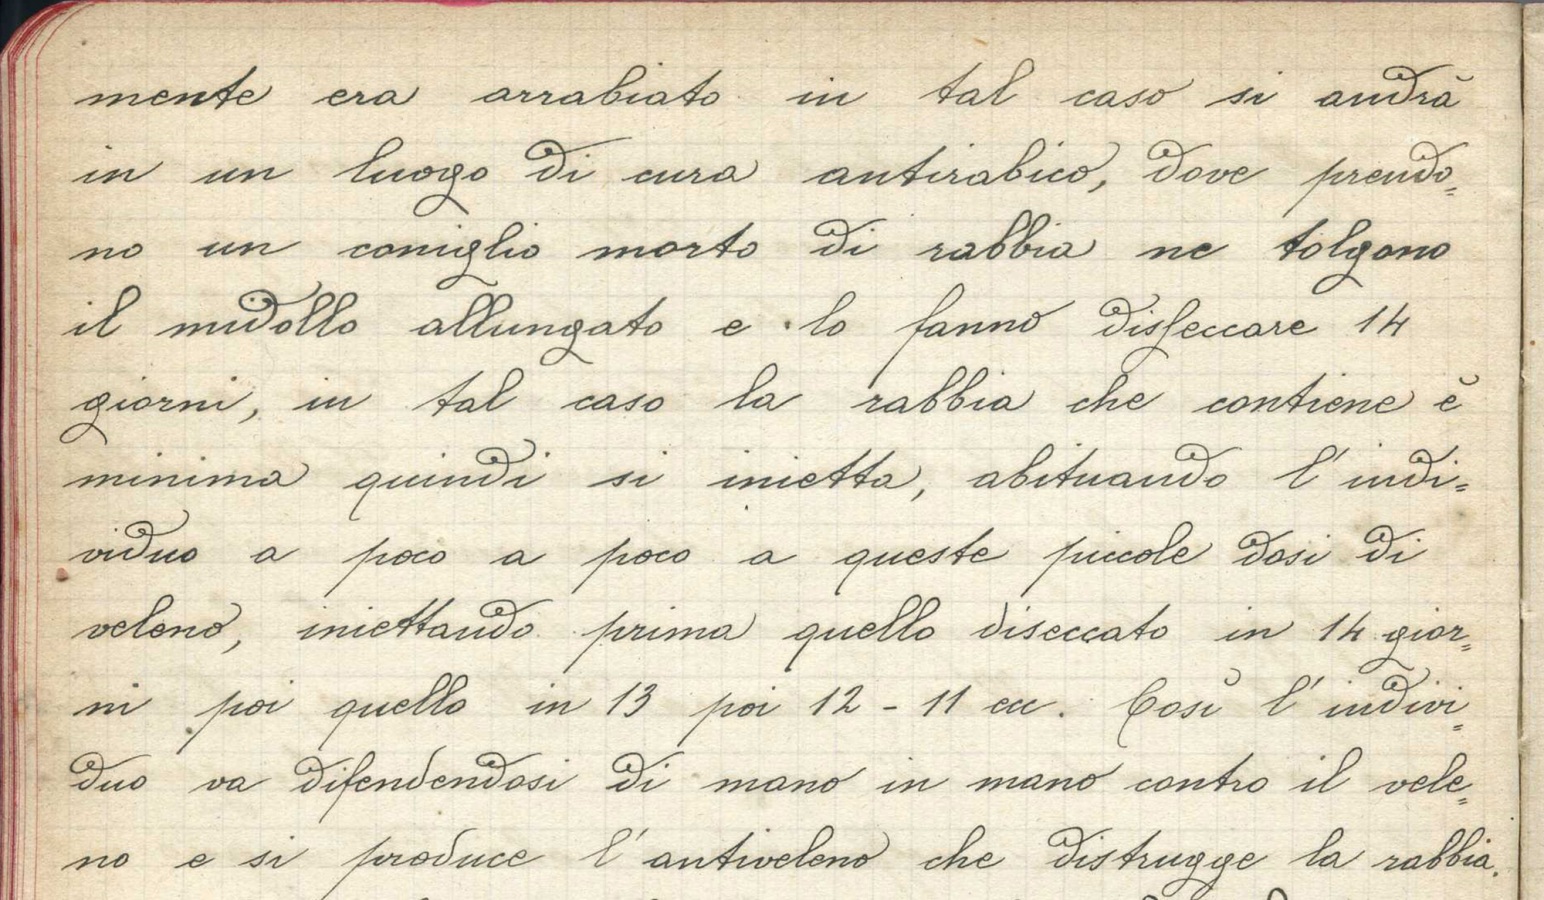 mente era arrabiato in tal caso si andrà
in un luogo di cura antirabico, dove prendo=
no un coniglio morto di rabbia ne tolgono
il midollo allungato e lo fanno disseccare 14
giorni, in tal caso la rabbia che contiene è
minima quindi si inietta, abituando l'indi=
viduo a poco a poco a queste piccole dosi di
veleno, iniettando prima quello diseccato in 14 gior=
ni poi quello in 13 poi 12 - 11 ecc. Così l'indivi=
duo va difendendosi di mano in mano contro il vele=
no e si produce l'antiveleno che distrugge la rabbia.